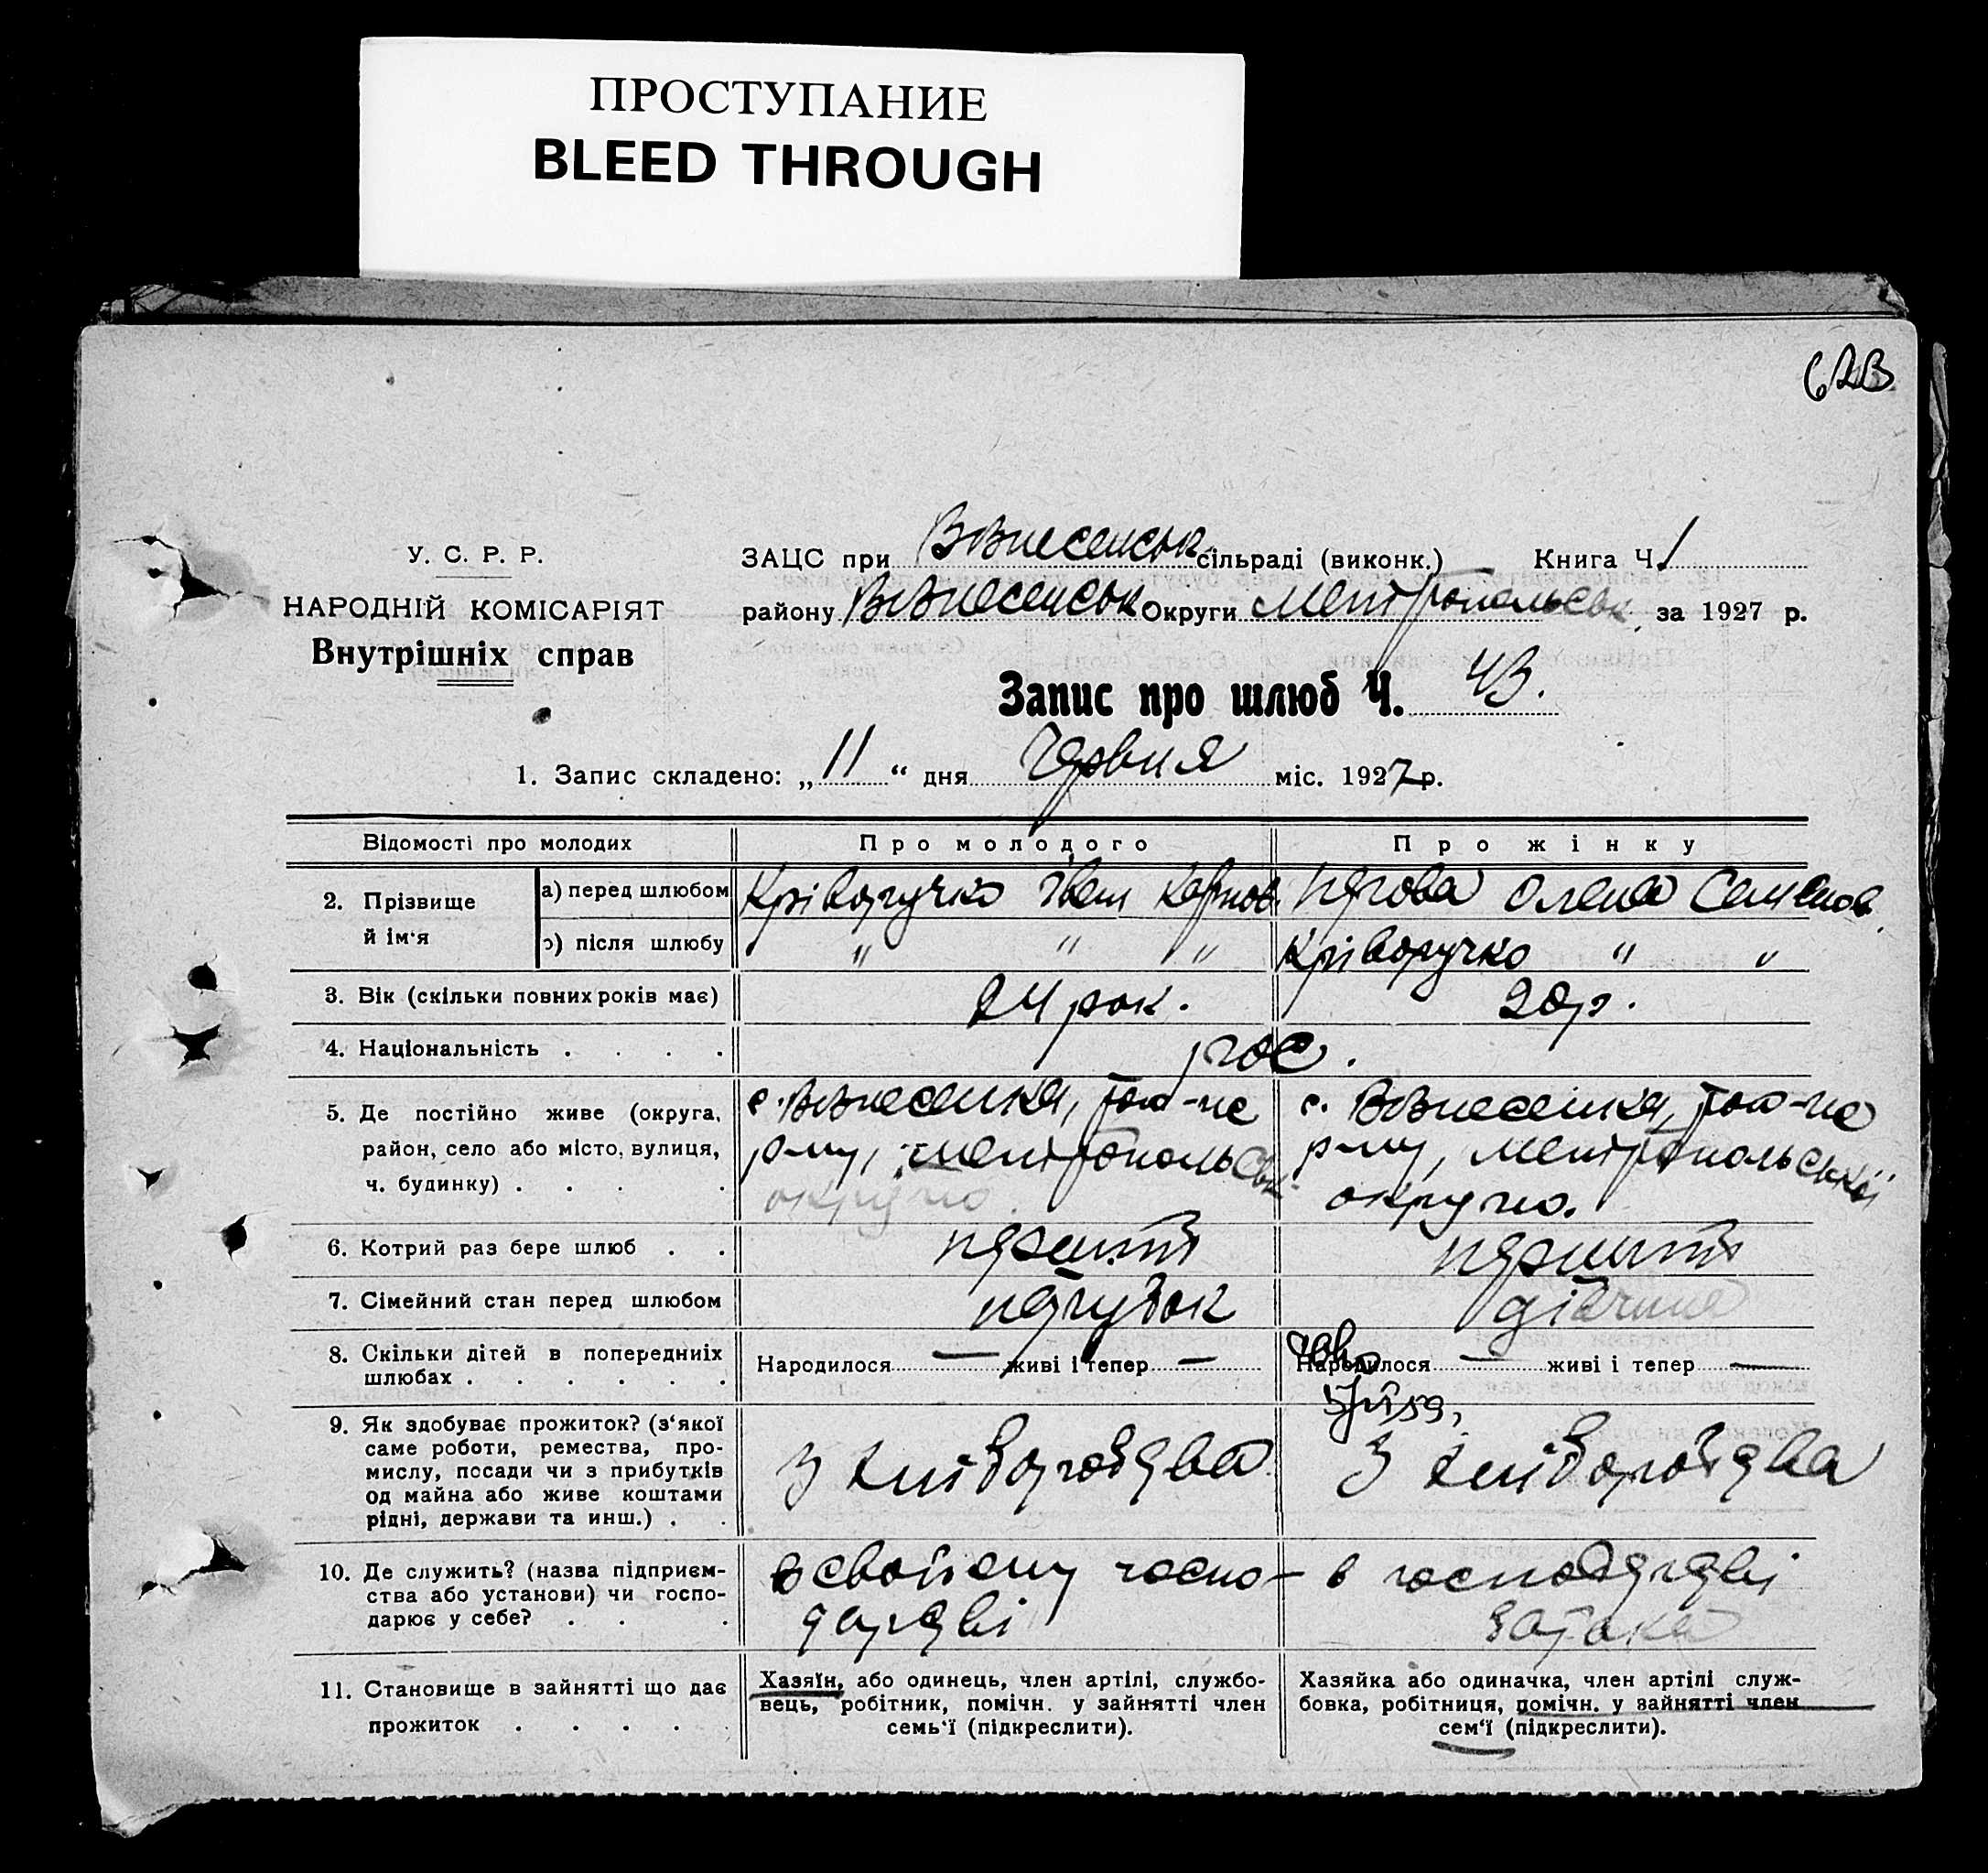 ПРОСТУПАНИЕ
BLEED THROUGH
У. С. Р. Р.
НАРОДНІЙ КОМІСАРІЯТ
Внутрішніх справ
ЗАЦС при Вознесенськ сільраді (виконк.) Книга Ч. 1
району Вознесенськ Округи Меліtопольськ за 1927 р.
Запис про шлюб Ч. 43.
1. Запис складено: „11“ дня Червня міс. 1927 р.
Відомості про молодих Про молодого Про жінку
2. Прізвище й ім‘я
а) перед шлюбом Кріворучко Іван Олена Семенов.
б) після шлюбу " " " Кріворучко " "
3. Вік (скільки повних років має) 24 рок. 20 р.
4. Національність . . . . рос.
5. Де постійно живе (округа,
район, село або місто, вулиця,
ч. будинку) . . . .
с. Вознесенка, того-же
р-ну, Мелітопольськ
округи.
с. Вознесенка, того-же
р-ну, Мелітопольської
округи.
6. Котрий раз бере шлюб . . перший перший
7. Сімейний стан перед шлюбом парубок дівчина
8. Скільки дітей в попередніх
шлюбах . . . . . .
Народилося — живі і тепер —
Народилося — живі і тепер —
9. Як здобуває прожиток? (з‘якої
саме роботи, ремества, про-
мислу, посади чи з прибутків
од майна або живе коштами
рідні, держави та инш.) . .
З хліборобства
З хліборобства
10. Де служить? (назва підприєм-
ства або установи) чи госпо-
дарює у себе? . . .
в свойому госпо-
дарстві
в господарстві
батька
11. Становище в зайнятті що дає
прожиток . . . . .
Хазяїн, або одинець, член артілі, службо-
вець, робітник, помічн. у зайнятті член
семь‘ї (підкреслити).
Хазяйка або одиначка, член артілі служ-
бовка, робітниця, помічн. у зайнятті член
сем‘ї (підкреслити).